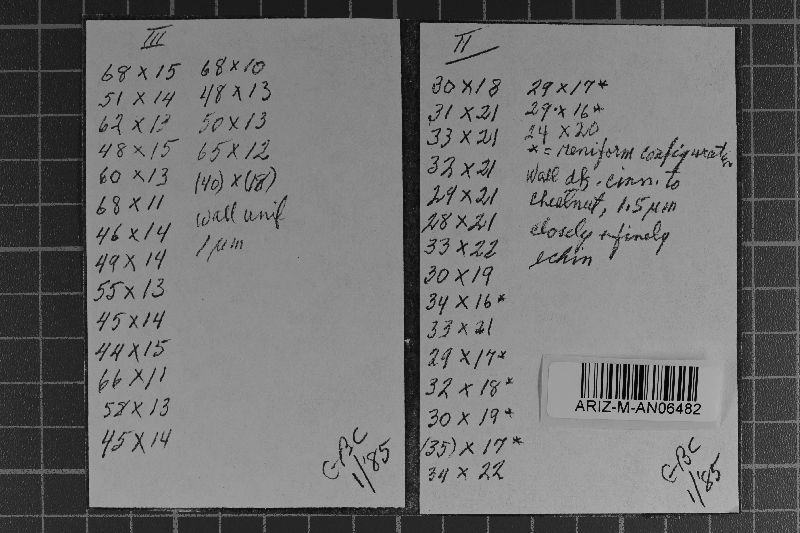 III
68 × 15
51 × 14
62 × 13
48 × 15
60 × 13
68 × 11
46 × 14
49 × 14
55 × 13
45 × 14
44 × 15
66 × 11
52 × 13
45 × 14
68 × 10
48 × 13
50 × 13
65 × 12
(40) × (18)
wall unif
1 µm
GBC
1/'85
II
30 × 18
31 × 21
33 × 21
32 × 21
29 × 21
28 × 21
33 × 22
30 × 19
34 × 16*
33 × 21
29 × 17*
32 × 18*
30 × 19*
(35) × 17*
34 × 22
29 × 17*
29 × 16*
34 × 20
* = reniform configuration
wall dk. cinn. to
chestnut, 1.5 µm
closely + finely
echin
ARIZ-M-AN06482
GBC
1/'85